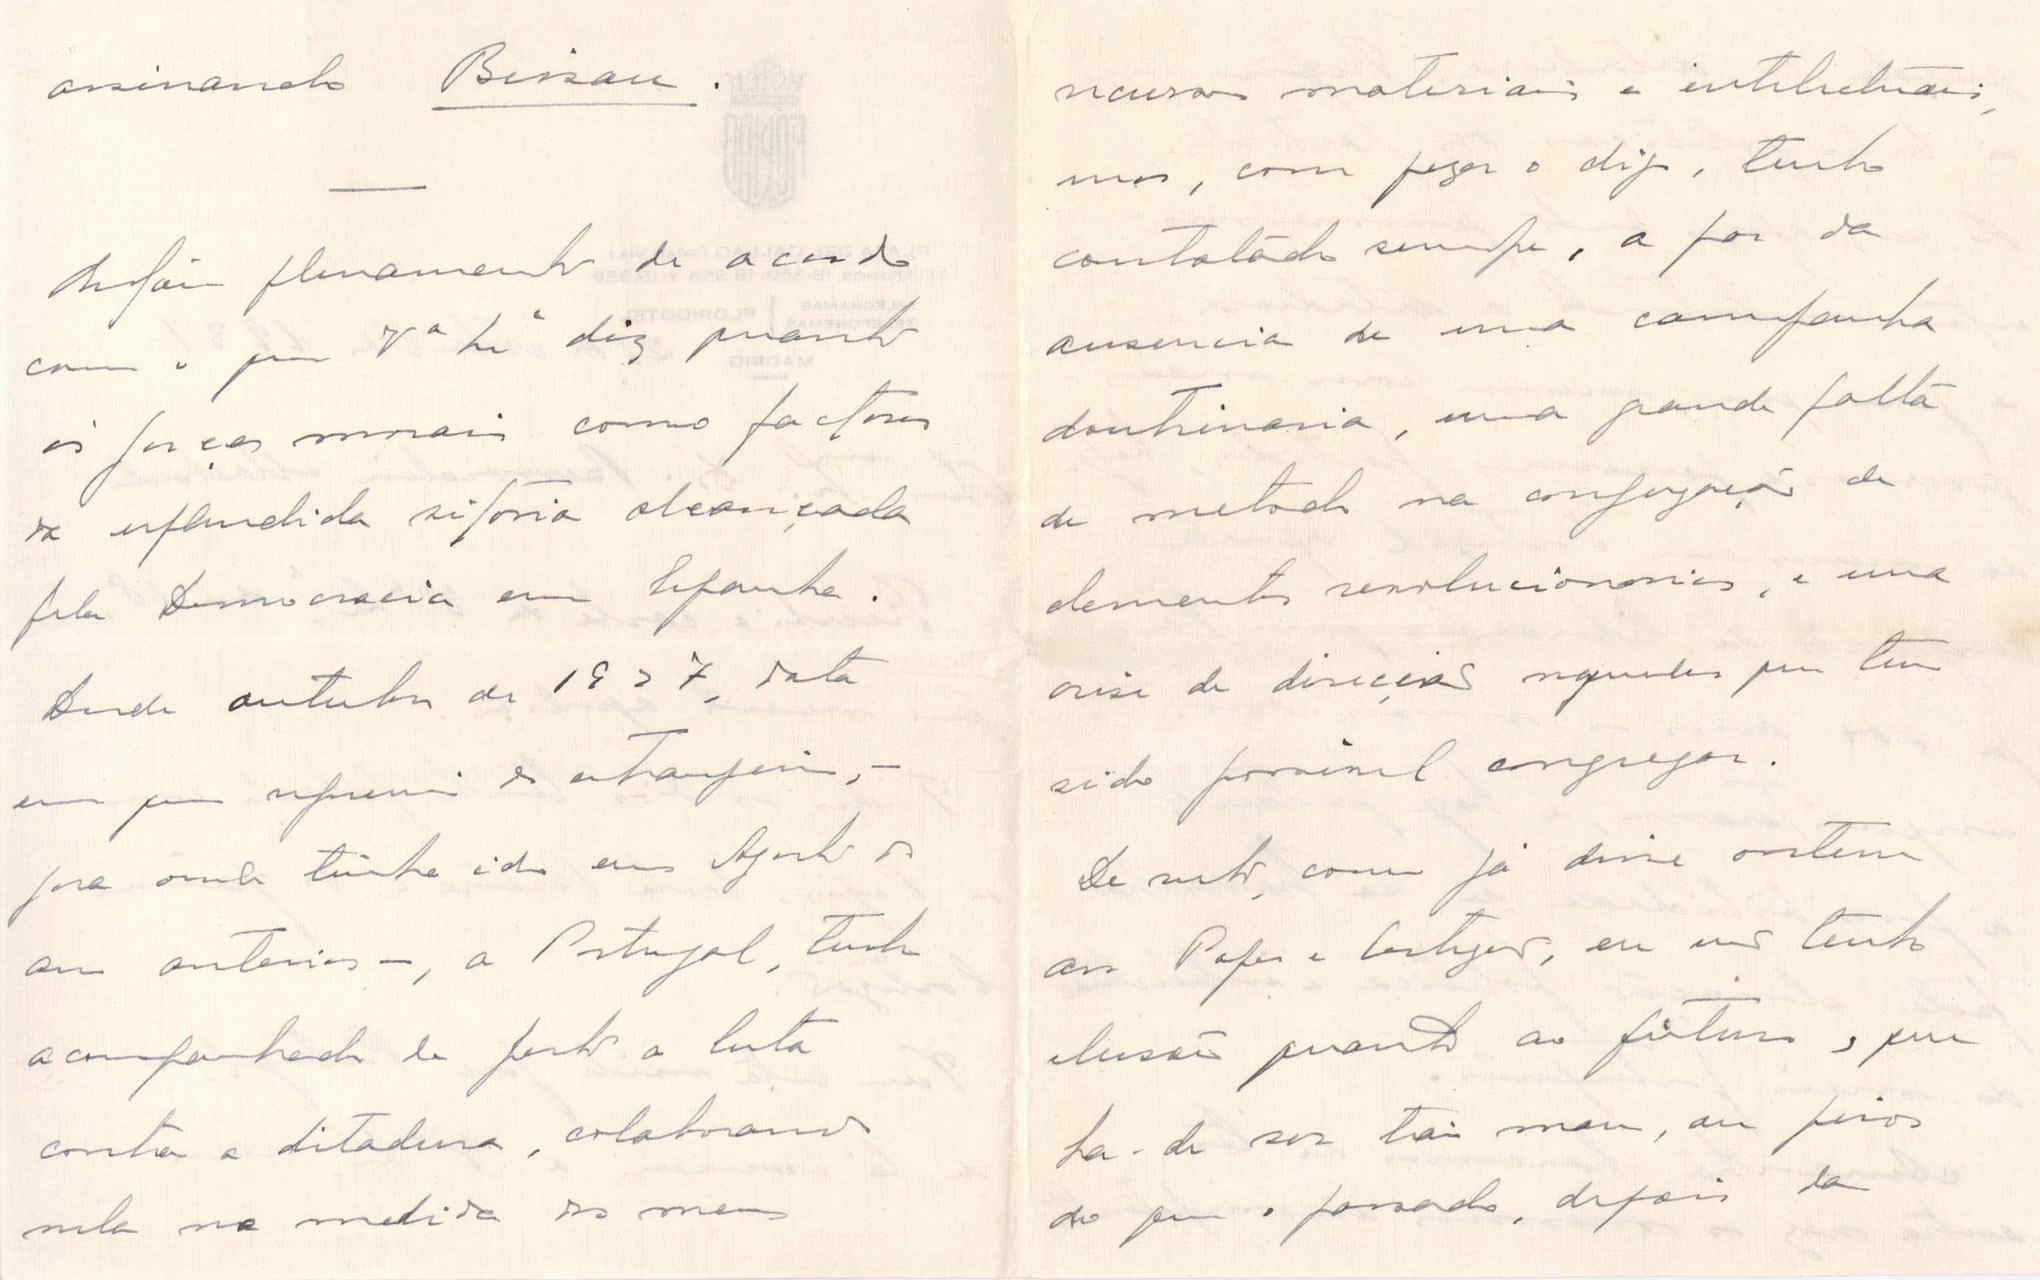 assinando Bissau.
—
Estou plenamente de acordo
com o que Vª Exª diz quanto
ás forças morais como factores
da esplendida vitoria alcançada
pela Democracia em Espanha.
Desde outubro de 1927, data
em que regressei do estrangeiro, –
para onde tinha ido em Agosto do
ano anterior –, a Portugal, tenho
acompanhado de perto a luta
contra a ditadura, colaborando
nela na medida dos meus
recursos materiais e intelectuais,
mas, com pezar o digo, tenho
constatado sempre, a par da
ausencia de uma campanha
doutrinaria, uma grande falta
de metodo na conjugação de
elementos revolucionarios, e uma
crise de direcção naqueles que tem
sido possivel congregar.
De resto, como já disse ontem
ao Pope e Cortezão, eu não tenho
ilusões quanto ao futuro, que
ha-de ser tão mau, ou peior
do que o passado, depois da